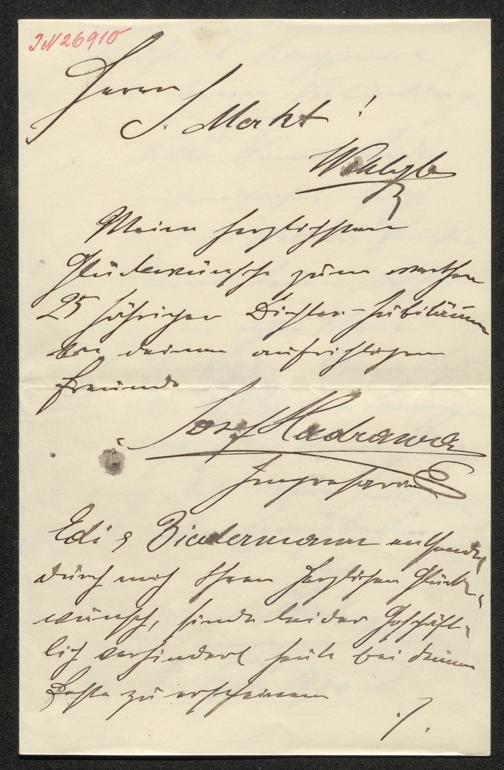 IN 26910
Herrn
J. Merkt!
Wohlgb
Meine herzlichsten
Glückwünsche zum werthen
25 jährigen Dichter-Jubiläum
von deinem aufrichtigen
Freunde
Josef Hadrawa
Impresario
Edi & Biedermann entsenden
durch mich Ihren herzlichen Glück-
wunsch, sind leider geschäft-
lich verhindert heute bei deinem
Feste zu erscheinen
./.